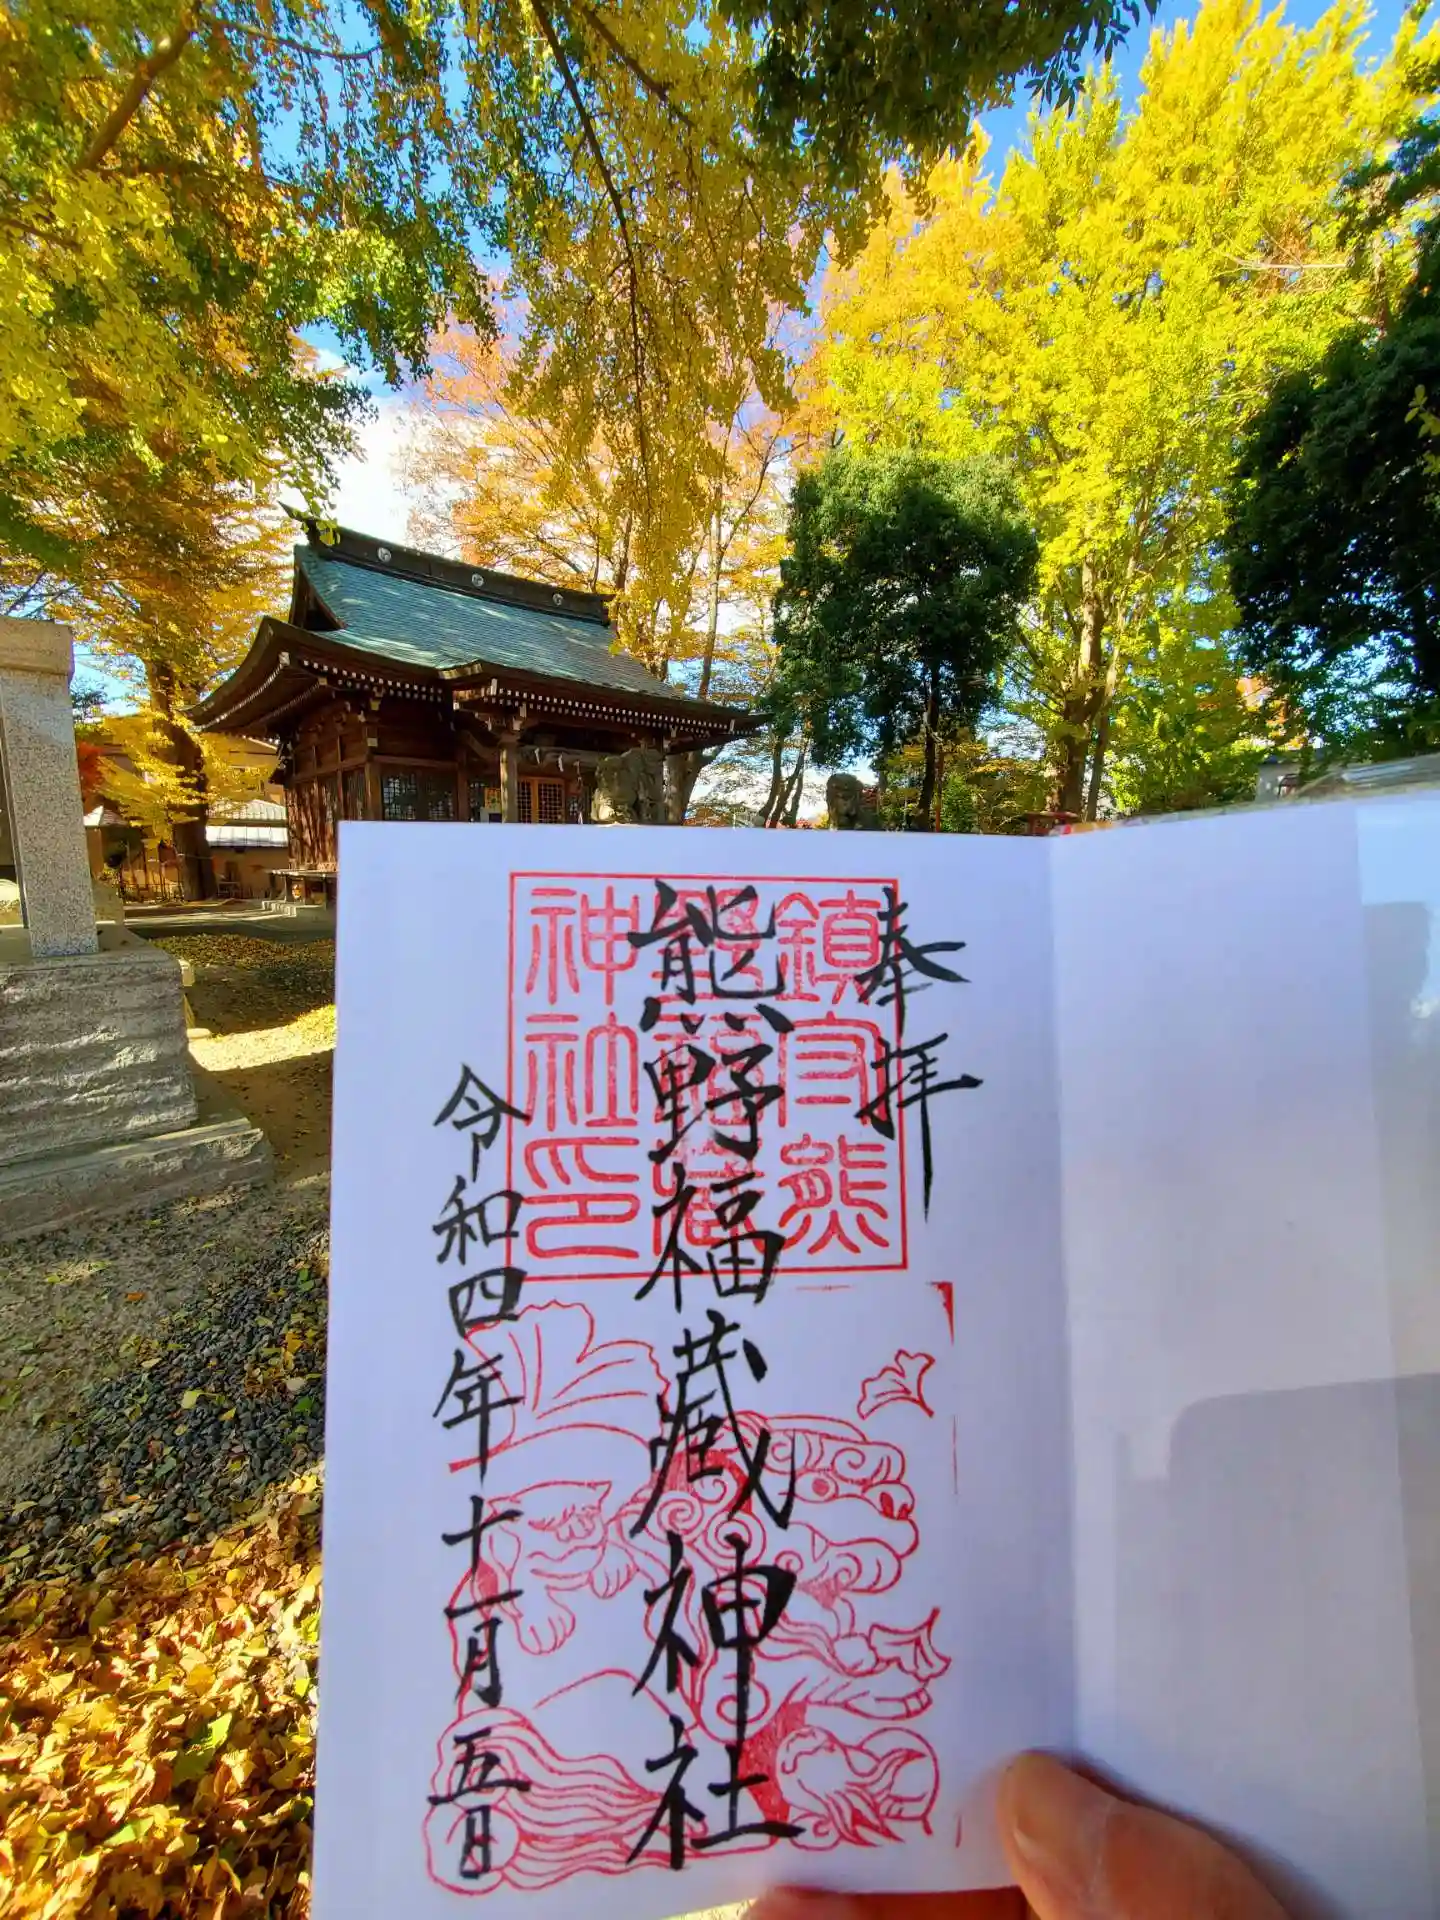 奉拝
鎮守熊
熊福蔵
神社印
熊野福蔵神社
令和四年十一月五日